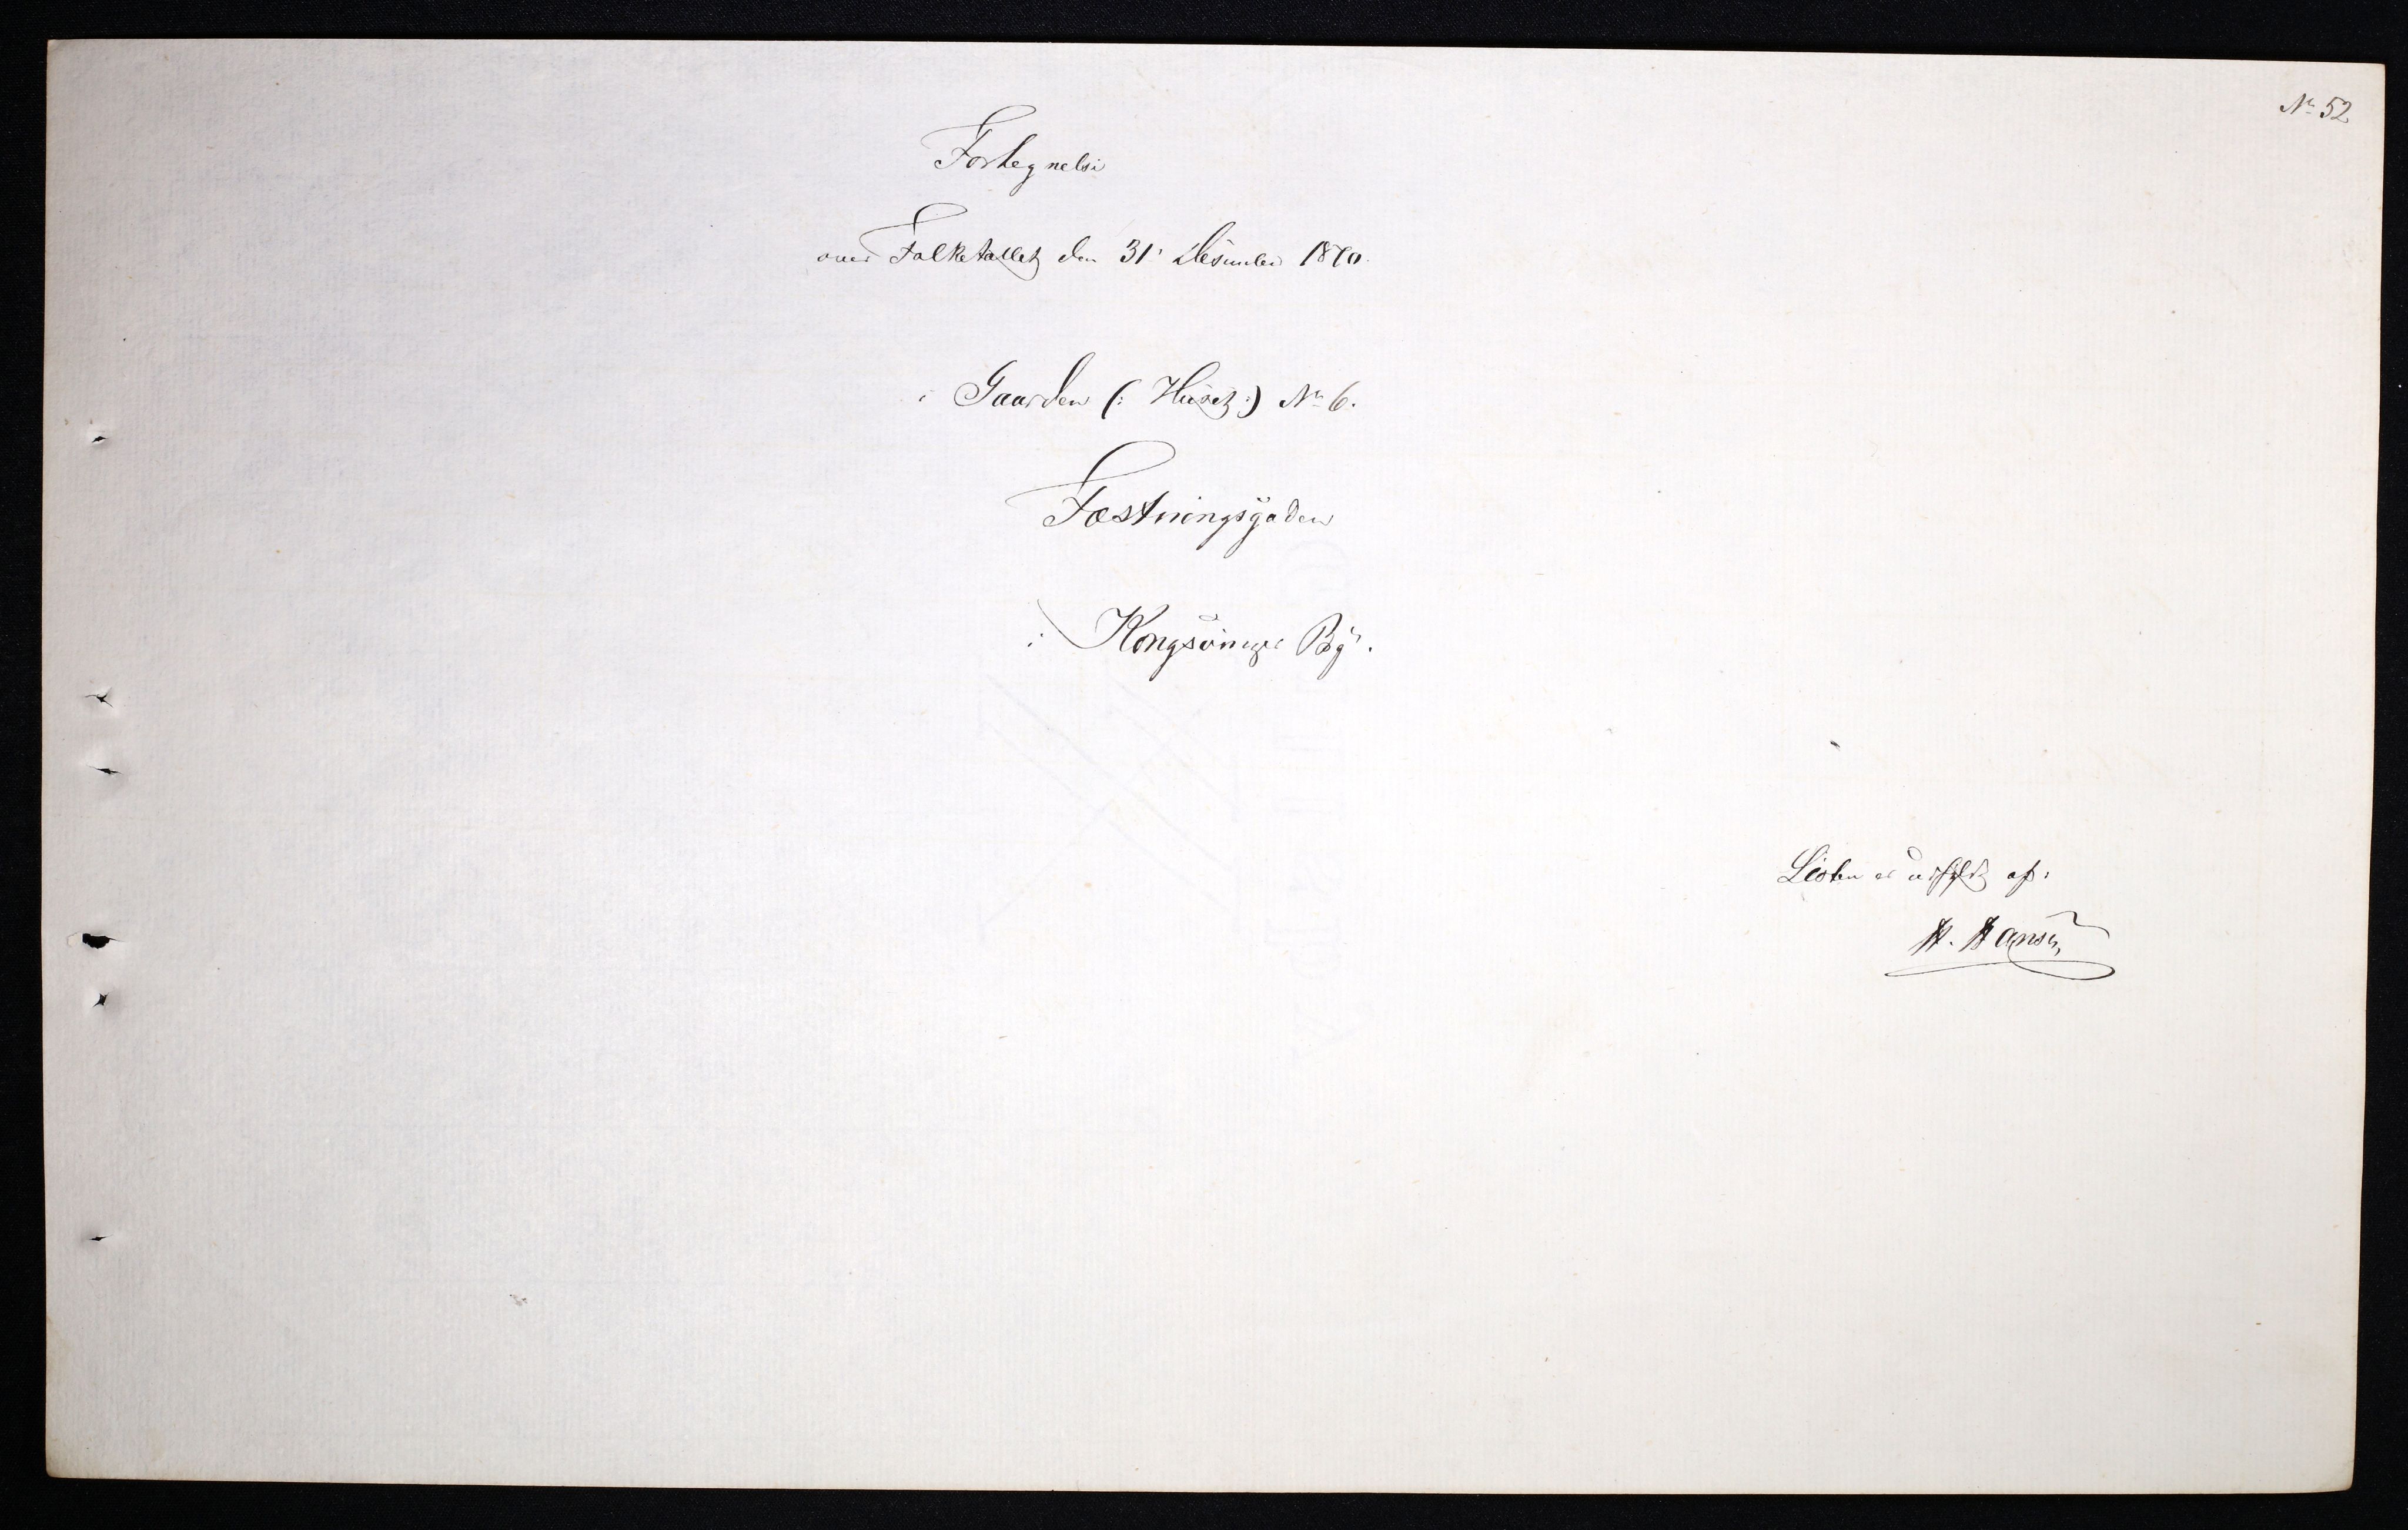 No 52
Fortegnelse
over Folketallet den 31' Desember 1870.
i Gaarden (: Huset :) No 6.
Fæstningsgaden
i Kongsvinger By.
Listen er udfyldt af:
H. Hansen